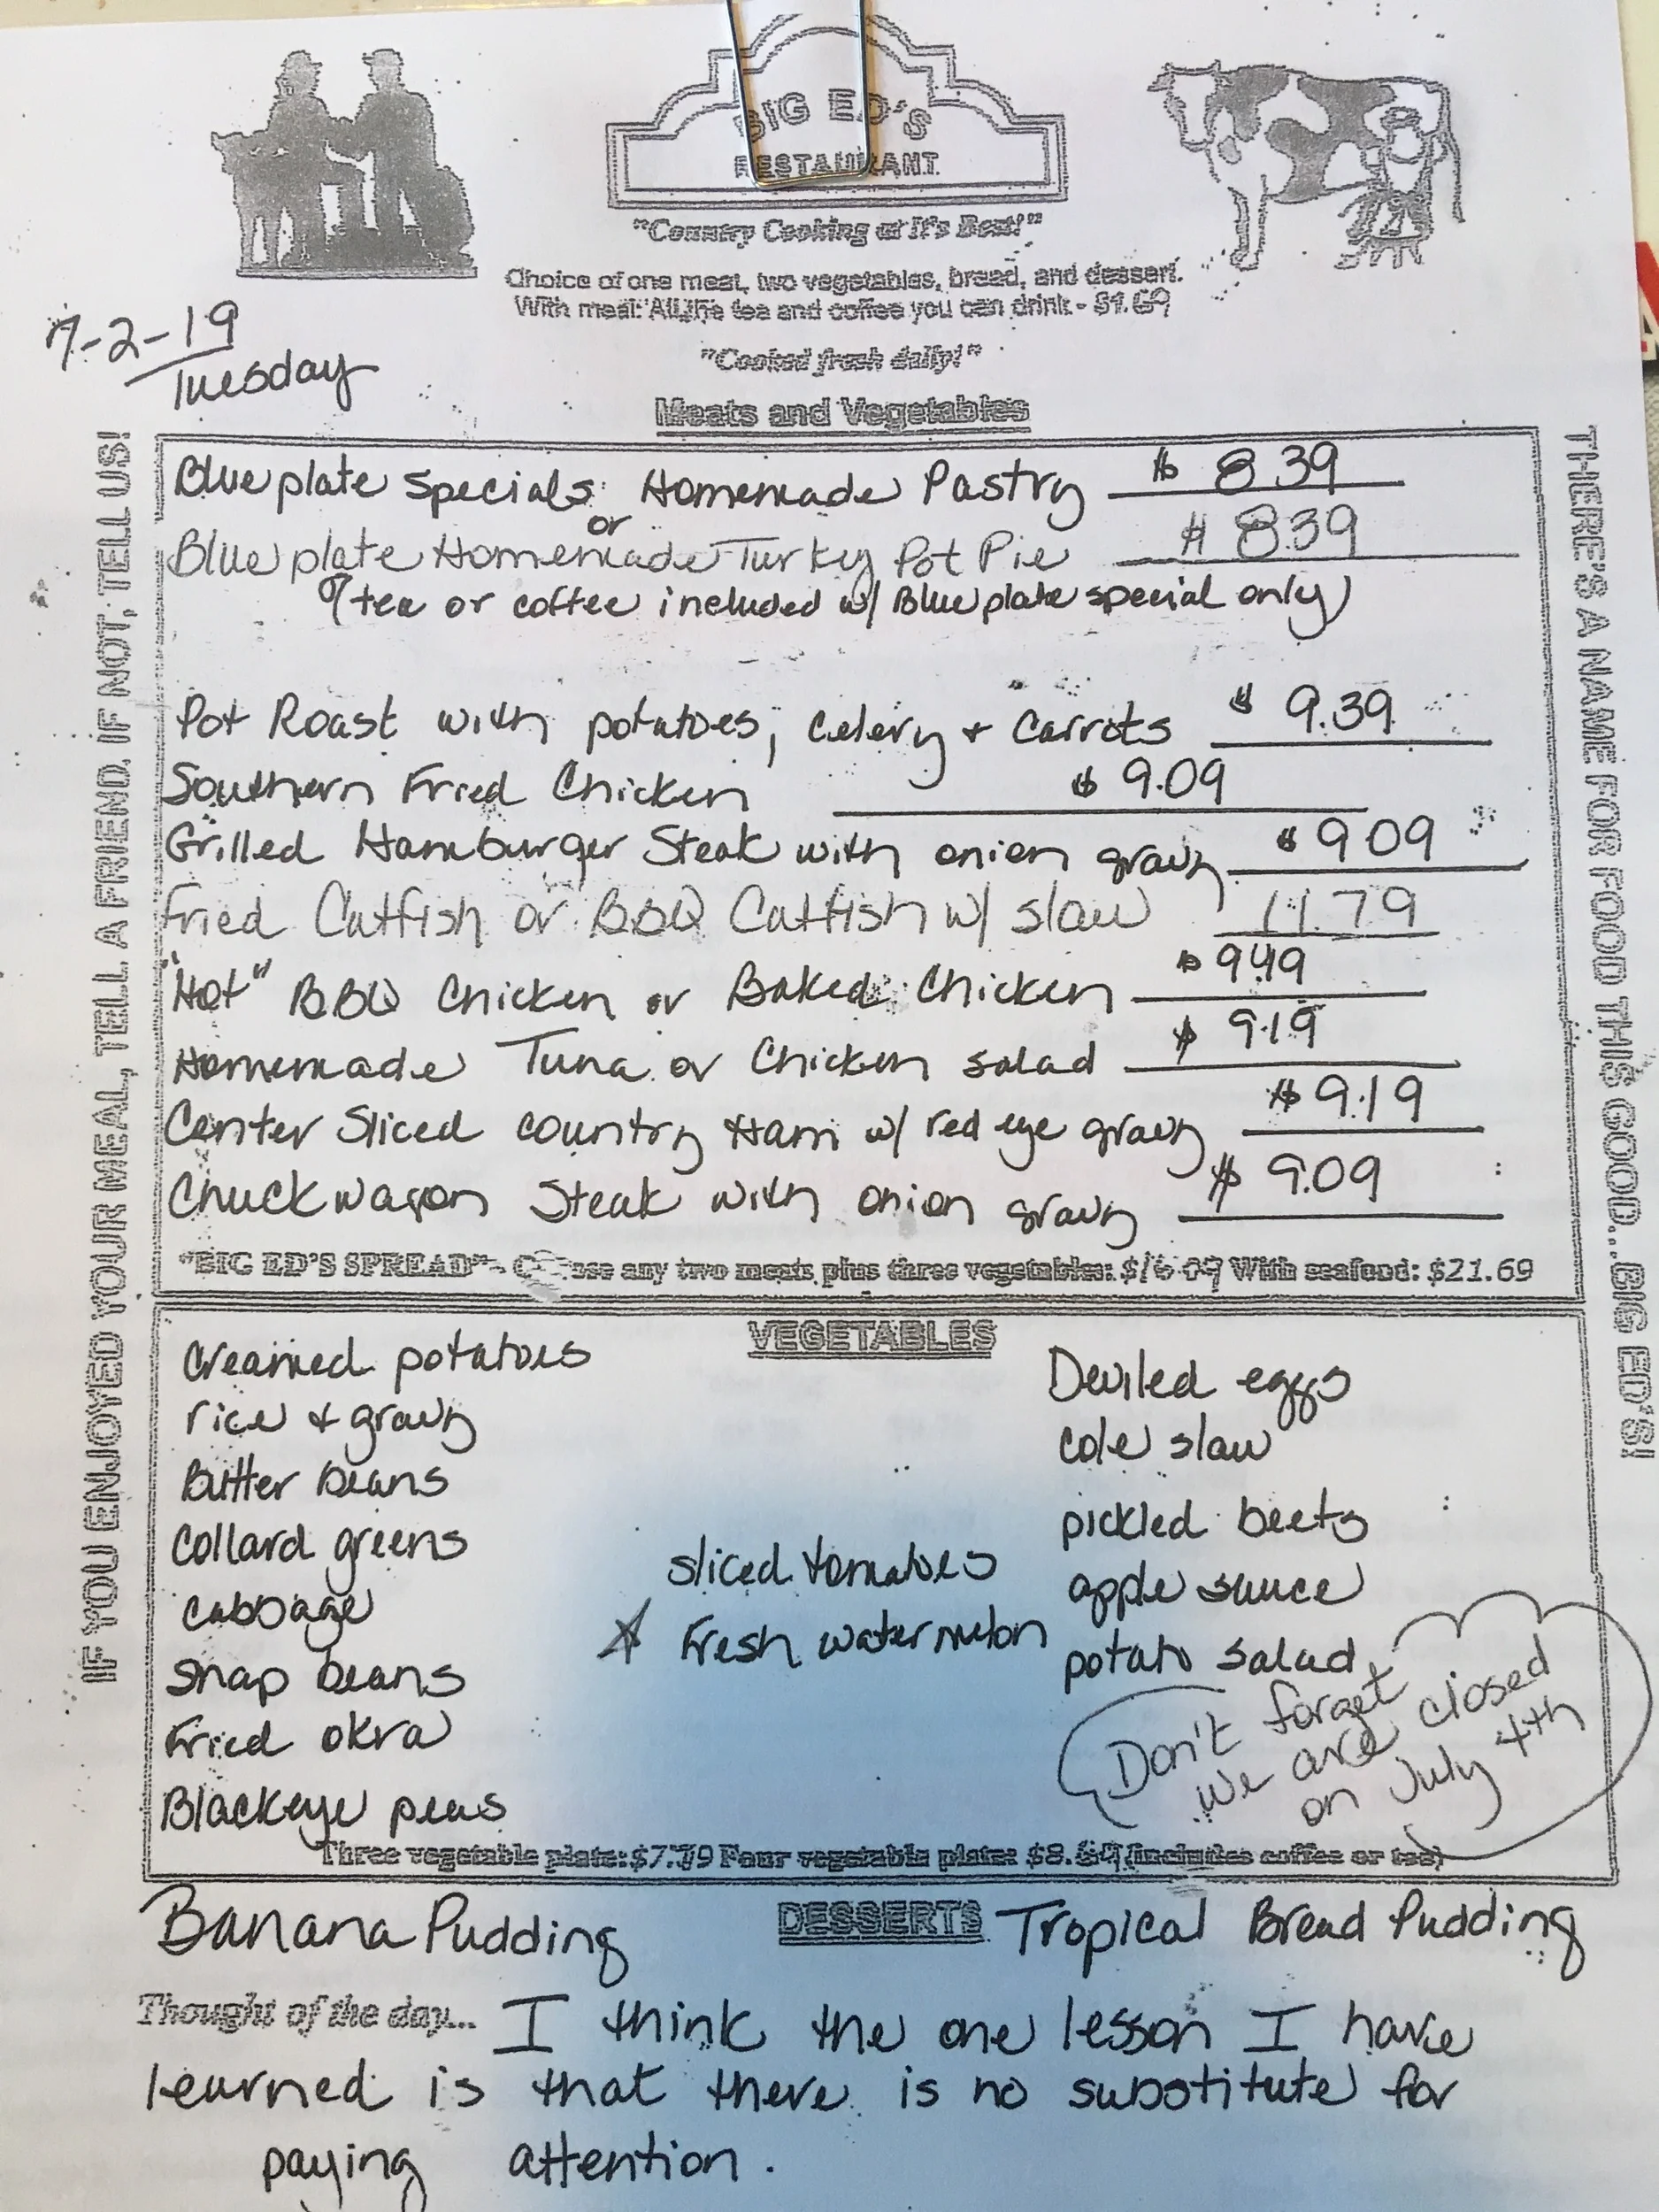 BIG ED'S
RESTAURANT
"Country Cooking at It's Best!"
Choice of one meat, two vegetables, bread, and dessert.
With meal: All the tea and coffee you can drink - $1.69
"Cooked fresh daily!"
7-2-19
Tuesday
Meats and Vegetables
IF YOU ENJOYED YOUR MEAL, TELL A FRIEND. IF NOT, TELL US!
THERE'S A NAME FOR FOOD THIS GOOD...BIG ED'S!
Blueplate Specials: Homemade Pastry $ 8.39
or
Blueplate Homemade Turkey Pot Pie $ 8.39
(tea or coffee included w/ Blueplate special only)
Pot Roast with potatoes, Celery + Carrots $ 9.39
Southern Fried Chicken $ 9.09
Grilled Hamburger Steak with onion gravy $ 9.09
Fried Catfish or BBQ Catfish w/ slaw 11.79
"Hot" BBQ Chicken or Baked Chicken $ 9.49
Homemade Tuna or Chicken salad $ 9.19
Center Sliced country Ham w/ red eye gravy $ 9.19
Chuckwagon Steak with onion gravy $ 9.09
"BIG ED'S SPREAD" - Choose any two meats plus three vegetables: $16.09 With seafood: $21.69
VEGETABLES
Creamed potatoes
rice + gravy
Butter beans
Collard greens
cabbage
snap beans
Fried okra
Blackeye peas
sliced tomatoes
Fresh watermelon
Deviled eggs
cole slaw
pickled beets
apple sauce
potato salad
Don't forget
we are closed
on July 4th
Three vegetable plate: $7.79 Four vegetable plate: (includes coffee or tea)
DESSERTS
Banana Pudding
Tropical Bread Pudding
Thought of the day... I think the one lesson I have
learned is that there is no substitute for
paying attention.